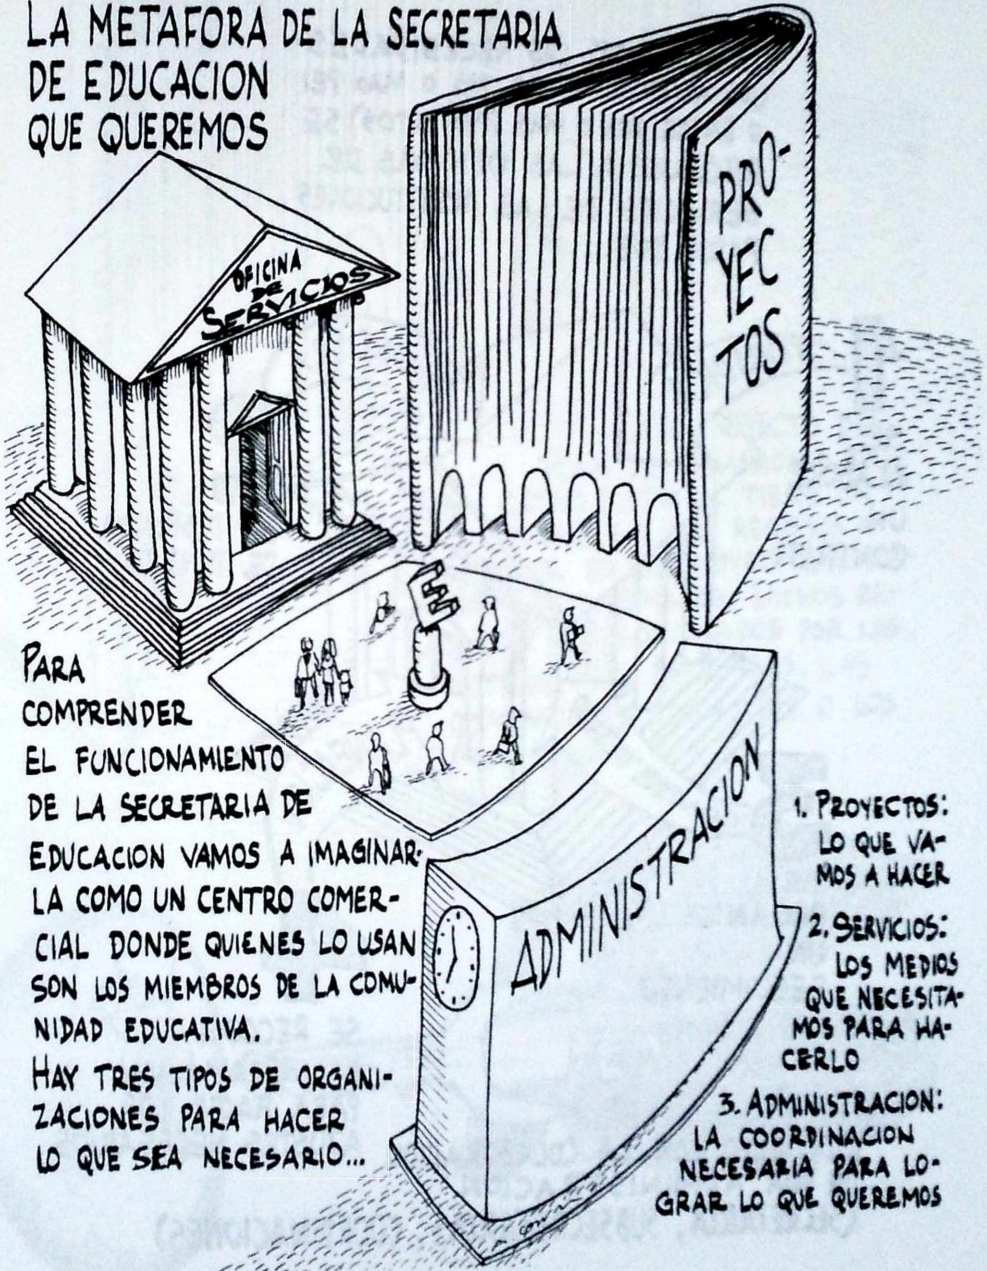 LA METAFORA DE LA SECRETARIA
DE EDUCACION
QUE QUEREMOS
OFICINA
DE
SERVICIOS
PRO-
YEC
TOS
E
PARA
COMPRENDER
EL FUNCIONAMIENTO
DE LA SECRETARIA DE
EDUCACION VAMOS A IMAGINAR-
LA COMO UN CENTRO COMER-
CIAL DONDE QUIENES LO USAN
SON LOS MIEMBROS DE LA COMU-
NIDAD EDUCATIVA.
HAY TRES TIPOS DE ORGANI-
ZACIONES PARA HACER
LO QUE SEA NECESARIO...
ADMINISTRACION
1. PROYECTOS:
LO QUE VA-
MOS A HACER
2. SERVICIOS:
LOS MEDIOS
QUE NECESITA-
MOS PARA HA-
CERLO
3. ADMINISTRACION:
LA COORDINACION
NECESARIA PARA LO-
GRAR LO QUE QUEREMOS